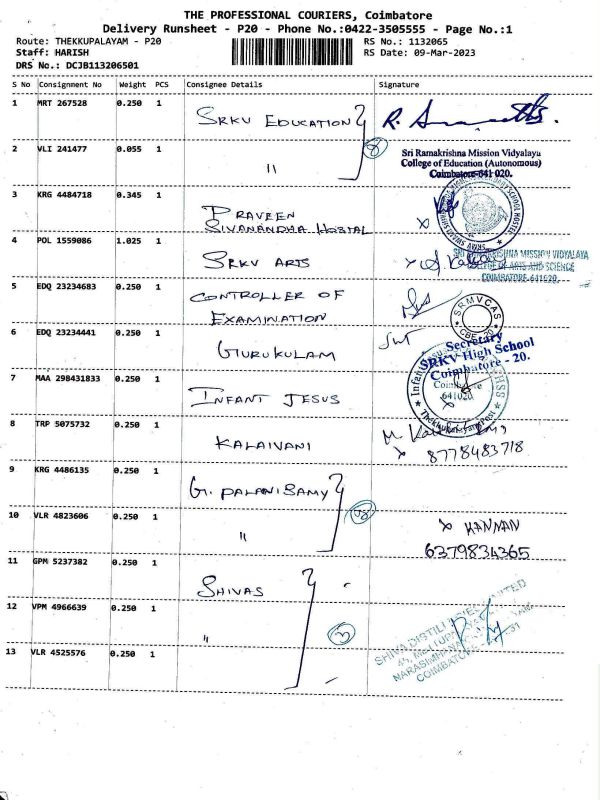 THE PROFESSIONAL COURIERS, Coimbatore
Delivery Runsheet - P20 - Phone No.:0422-3505555 - Page No.:1
Route: THEKKUPALAYAM - P20
RS No.: 1132065
Staff: HARISH
RS Date: 09-Mar-2023
DRS No.: DCJB113206501
S No Consignment No Weight PCS Consignee Details Signature
1 MRT 267528 0.250 1 SRKV EDUCATION
2 VLI 241477 0.055 1 "
Sri Ramakrishna Mission Vidyalaya
College of Education (Autonomous)
Coimbatore-641 020.
3 KRG 4484718 0.345 1 PRAVEEN
SIVANANDHA HOSTAL
4 POL 1559086 1.025 1 SRKV ARTS
MISSION VIDYALAYA
COLLEGE OF ARTS AND SCIENCE
COIMBATORE-641020
5 EDQ 23234683 0.250 1 CONTROLLER OF
EXAMINATION
SRMVCAS
CBE-20
6 EDQ 23234441 0.250 1 GURUKULAM
Secretary
SRKV High School
Coimbatore - 20.
7 MAA 298431833 0.250 1 INFANT JESUS
641020
8 TRP 5075732 0.250 1 KALAIVANI
8778483718
9 KRG 4486135 0.250 1 G. PALANISAMY
10 VLR 4823606 0.250 1 " x KANNAN
6379834365
11 GPM 5237382 0.250 1 SHIVAS
12 VPM 4966639 0.250 1 "
13 VLR 4525576 0.250 1